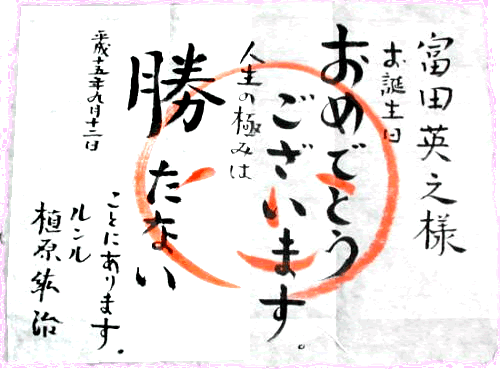 富田英之様
お誕生日
おめでとう
ございます。
人生の極みは
勝たない
ことにあります。
平成十五年九月十二日
ルンル
植原紘治